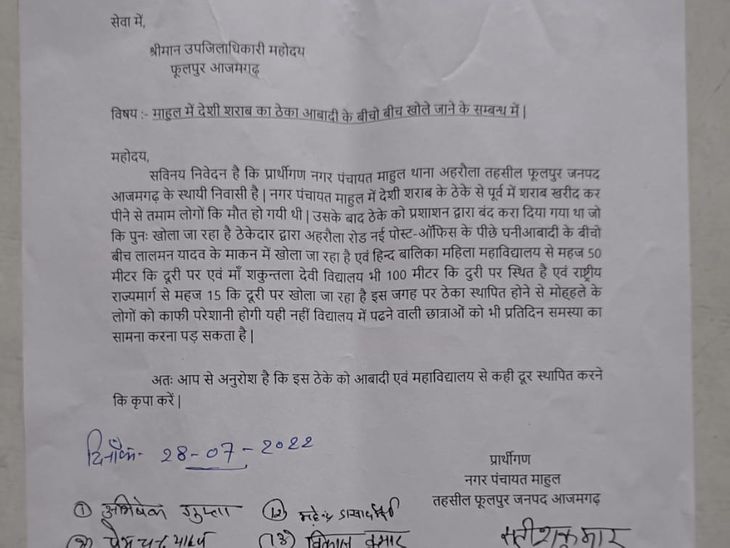 सेवा में,
श्रीमान उपजिलाधिकारी महोदय
फूलपुर आजमगढ़
विषय :- माहुल में देशी शराब का ठेका आबादी के बीचो बीच खोले जाने के सम्बन्ध में |
महोदय,
सविनय निवेदन है कि प्रार्थीगण नगर पंचायत माहुल थाना अहरौला तहसील फूलपुर जनपद
आजमगढ़ के स्थायी निवासी है | नगर पंचायत माहुल में देशी शराब के ठेके से पूर्व में शराब खरीद कर
पीने से तमाम लोगों कि मौत हो गयी थी | उसके बाद ठेके को प्रशाशन द्वारा बंद करा दिया गया था जो
कि पुनः खोला जा रहा है ठेकेदार द्वारा अहरौला रोड नई पोस्ट-ऑफिस के पीछे घनीआबादी के बीचो
बीच लालमन यादव के माकन में खोला जा रहा है एवं हिन्द बालिका महिला महाविद्यालय से महज 50
मीटर कि दूरी पर एवं माँ शकुन्तला देवी विद्यालय भी 100 मीटर कि दुरी पर स्थित है एवं राष्ट्रीय
राज्यमार्ग से महज 15 कि दूरी पर खोला जा रहा है इस जगह पर ठेका स्थापित होने से मोहहले के
लोगों को काफी परेशानी होगी यही नहीं विद्यालय में पढने वाली छात्राओं को भी प्रतिदिन समस्या का
सामना करना पड़ सकता है |
अतः आप से अनुरोश है कि इस ठेके को आबादी एवं महाविद्यालय से कही दूर स्थापित करने
कि कृपा करें |
दिनाँक- 28-07-2022
प्रार्थीगण
नगर पंचायत माहुल
तहसील फूलपुर जनपद आजमगढ़
① अभिषेक गुप्ता
(12) महेन्द्र
② प्रेम चन्द्र यादव
(13) विकास कुमार
सतीश कुमार